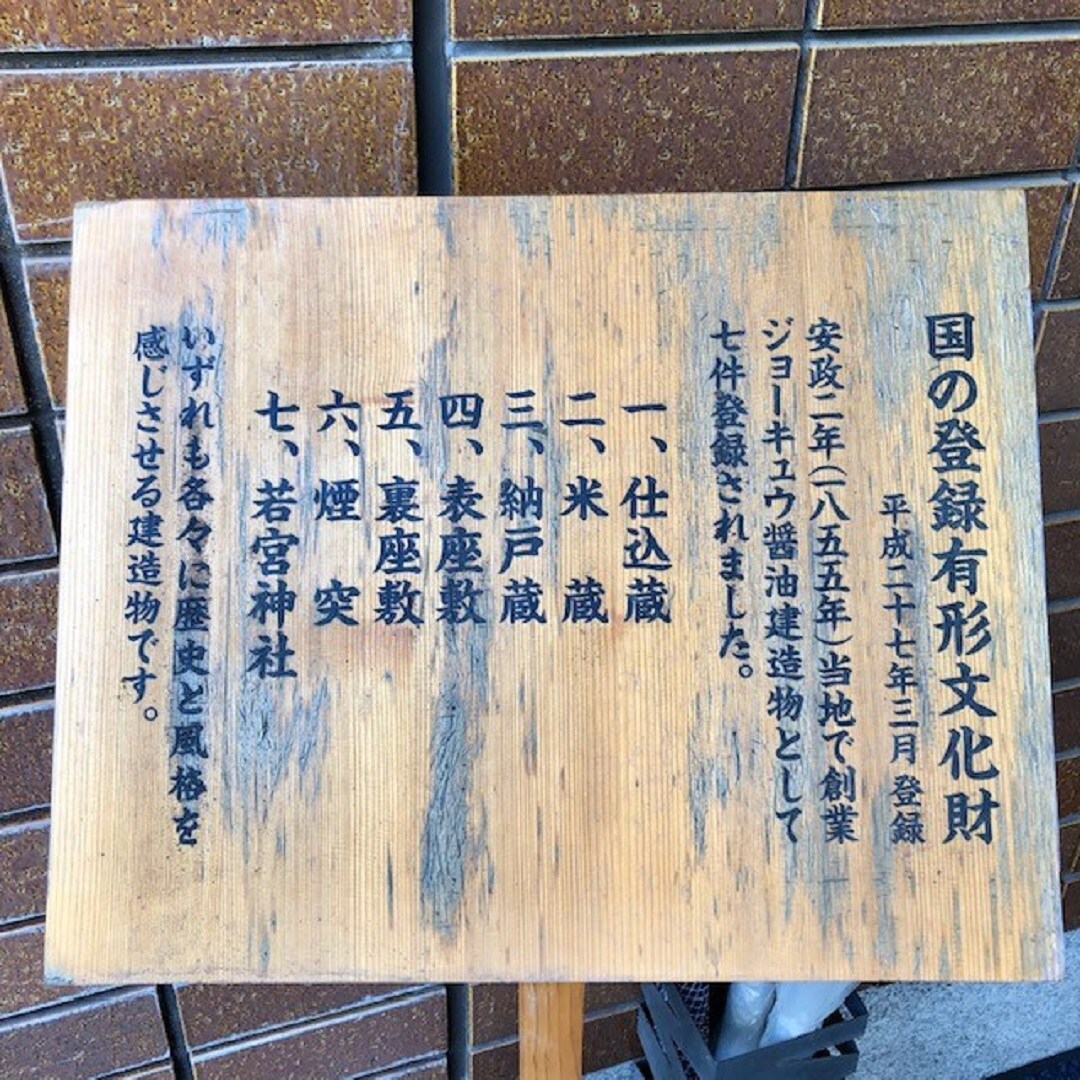 国の登録有形文化財
平成二十七年三月登録
安政二年(一八五五年)当地で創業
ジョーキュウ醤油建造物として
七件登録されました。
一、仕込蔵
二、米 蔵
三、納戸蔵
四、表座敷
五、裏座敷
六、煙 突
七、若宮神社
いずれも各々に歴史と風格を
感じさせる建造物です。